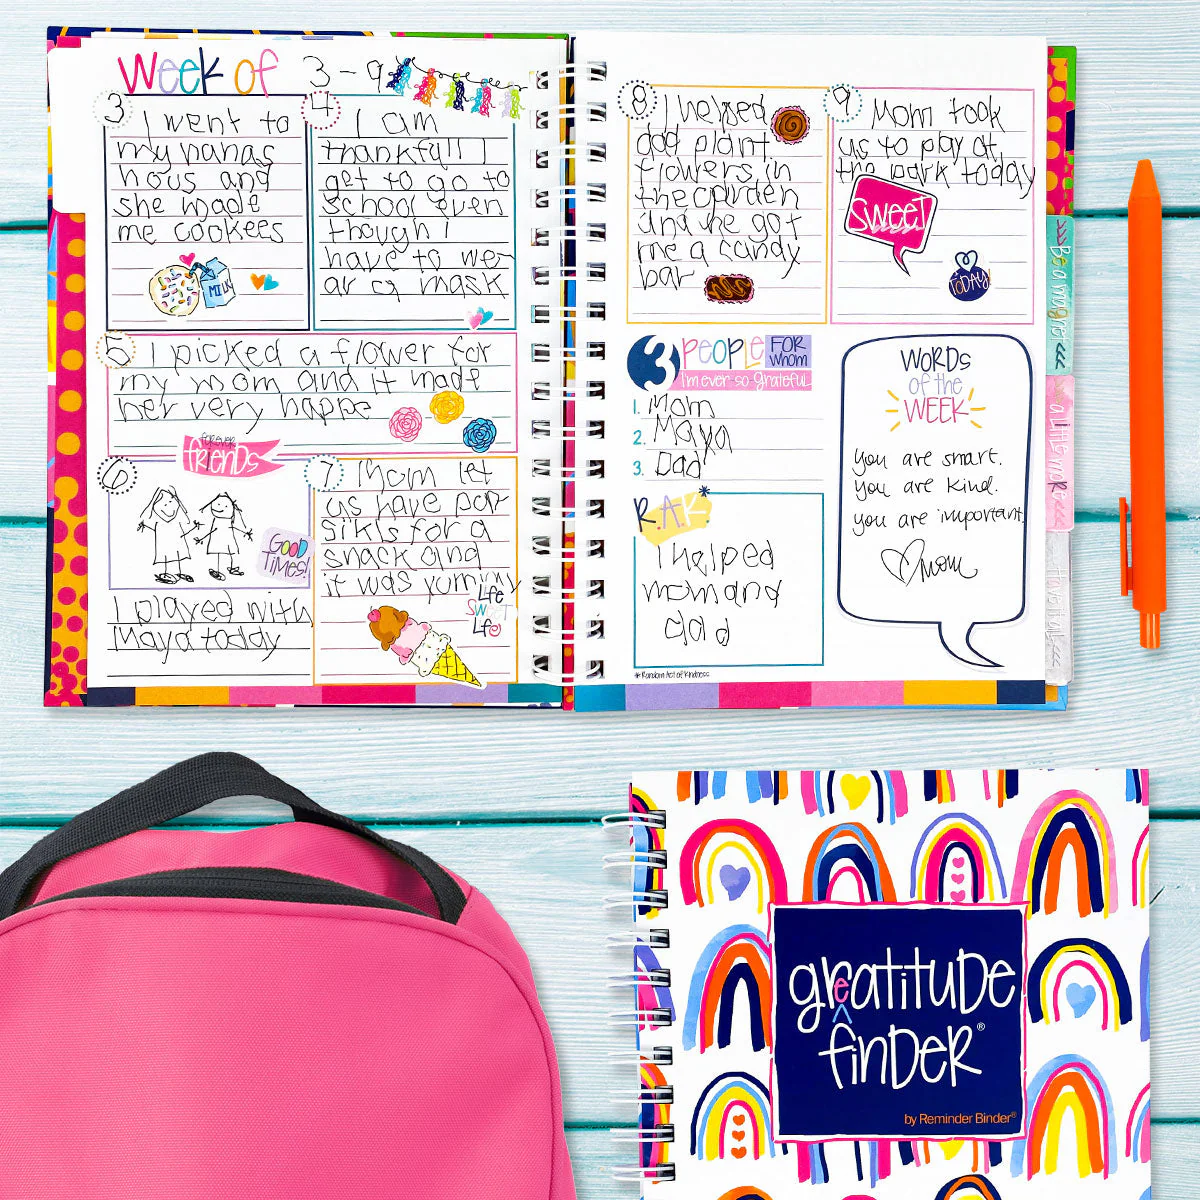 Week of 3-9
3
I went to
my nanas
hous and
she made
me cookees
MILK
4
I am
thankfull I
get to go to
school even
though I
have to we-
ar a mask
5
I picked a flower for
my mom and it made
her very happe
6
forever
friends
GOOD
TIMES!
I played with
Maya today
7
Mom let
us have pop
sikls for a
snack and
it was yummy
Life
SWEET
Life
8
I helped
dad plant
flowers in
the garden
and he got
me a candy
bar
9
Mom took
us to play at
the park today
SWEET
TODAY
3 PEOPLE FOR whom
I'm ever so grateful
1. Mom
2. Maya
3. Dad
R.A.K.*
I helped
mom and
dad
*Random Act of Kindness
WORDS
of the
WEEK
you are smart.
you are kind.
you are important.
mom
a little more <<<
greatituDe
finDeR®
by Reminder Binder®